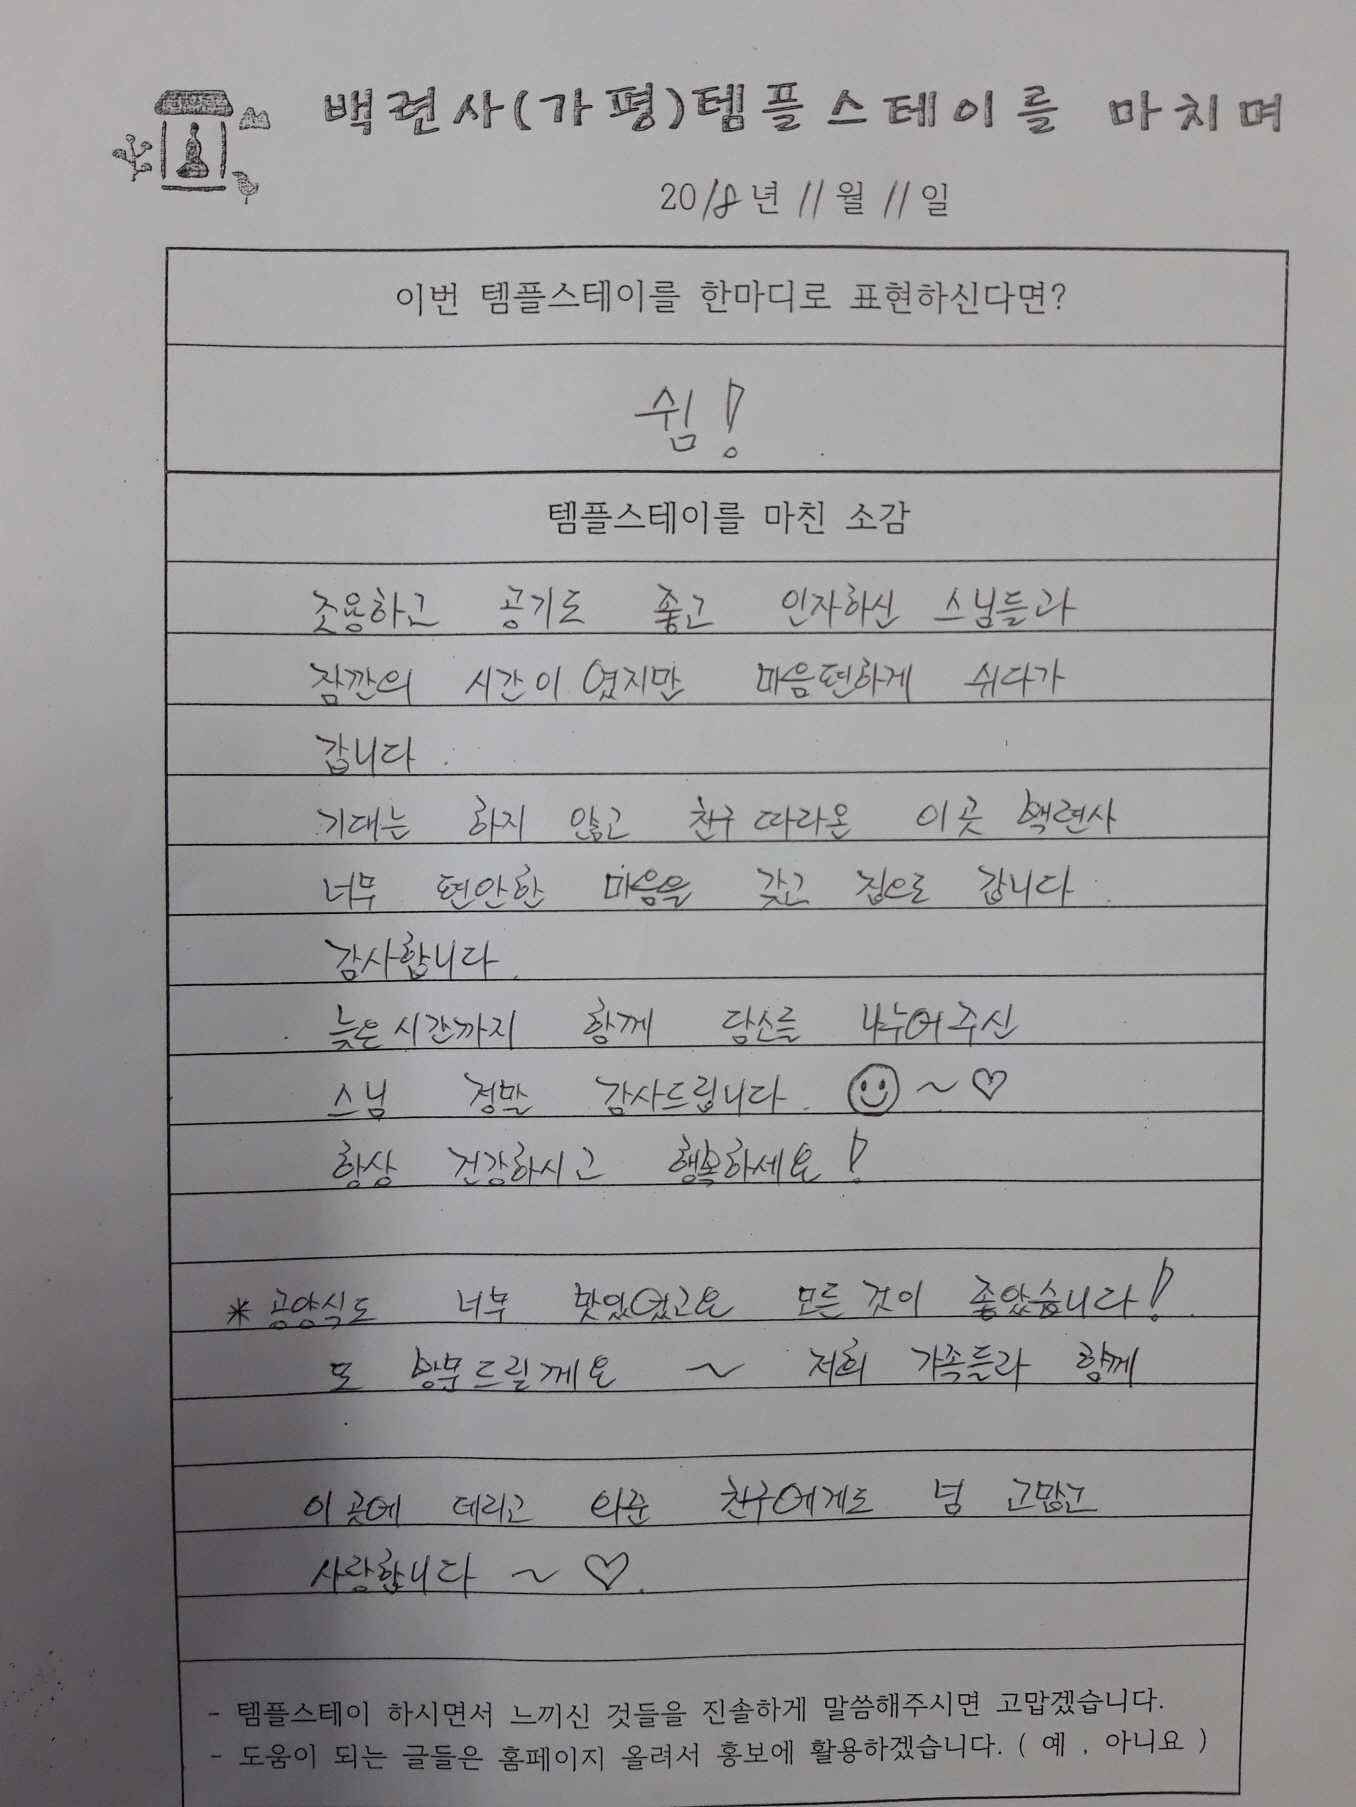 백련사(가평)템플스테이를 마치며
2018년 11월 11일
이번 템플스테이를 한마디로 표현하신다면?
쉼!
템플스테이를 마친 소감
조용하고 공기도 좋고 인자하신 스님들과
잠깐의 시간이였지만 마음편하게 쉬다가
갑니다.
기대는 하지 않고 친구 따라온 이곳 백련사
너무 편안한 마음을 갖고 집으로 갑니다.
감사합니다.
늦은시간까지 함께 담소를 나누어주신
스님 정말 감사드립니다. ☺~♡
항상 건강하시고 행복하세요!
* 공양식도 너무 맛있었고요 모든것이 좋았습니다!
또 방문드릴께요 ~ 저희 가족들과 함께
이곳에 데리고 와준 친구에게도 넘 고맙고
사랑합니다 ~ ♡.
- 템플스테이 하시면서 느끼신 것들을 진솔하게 말씀해주시면 고맙겠습니다.
- 도움이 되는 글들은 홈페이지 올려서 홍보에 활용하겠습니다. ( 예 , 아니요 )